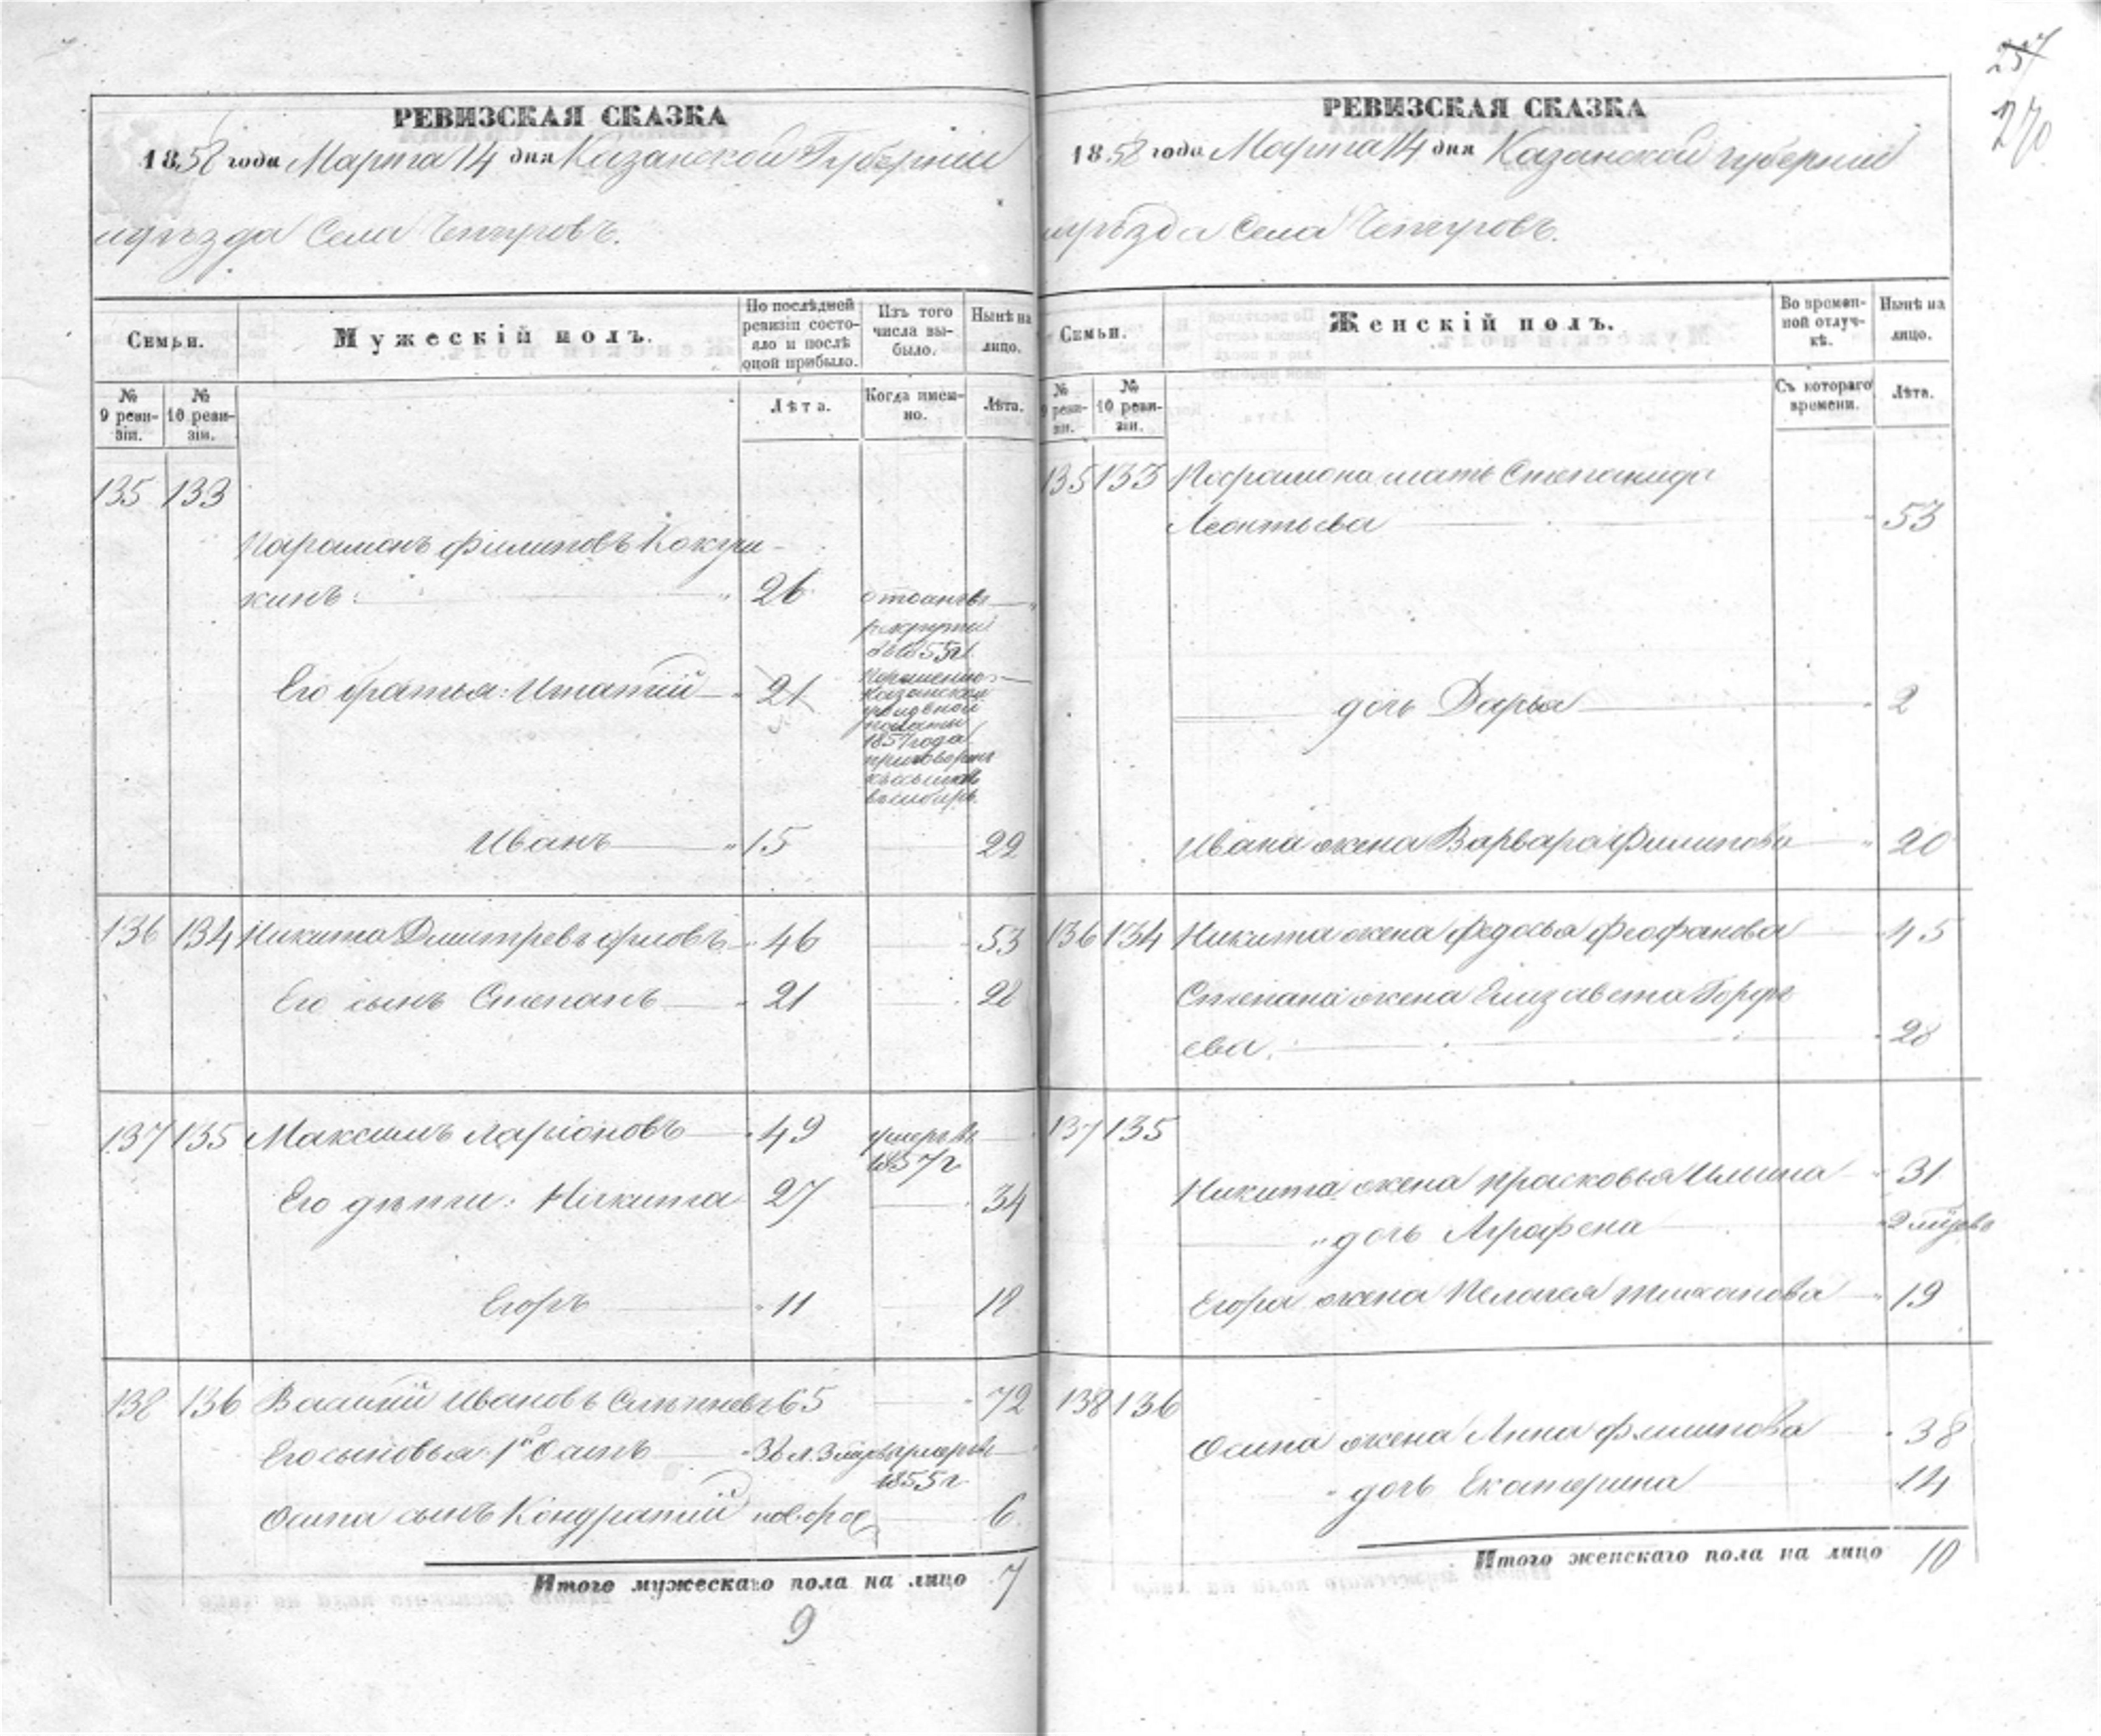 257
270
РЕВИЗСКАЯ СКАЗКА
1858 года Марта 14 дня Казанской Губернии
уѣзда Села
Семьи.
Мужескій полъ.
По послѣдней ревизіи состояло и послѣ оной прибыло.
Изъ того числа выбыло.
Нынѣ на лицо.
№ 9 ревизіи.
№ 10 ревизіи.
Лѣта.
Когда именно.
Лѣта.
135 133
Парамонъ Филиповъ
кинъ: 26 отданъ въ
рекруты
въ 1855 г.
Его братья: Игнатій 21
Казанской
палаты
1857 года
Иванъ 15 22
136 134 Никита Дмитревъ 46 53
Его сынъ Степанъ 21 28
137 135 Максимъ Ларіоновъ 49 умеръ въ
1857 г
Его дѣти: Никита 27 34
Егоръ 11 18
138 136 Василій Ивановъ 65 72
Его сыновья: 1й Осипъ умеръ въ
1855 г
Осипа сынъ Кондратій новорож 6
Итого мужескаго пола на лицо 7
9
РЕВИЗСКАЯ СКАЗКА
1858 года Марта 14 дня Казанской губерніи
уѣзда Села
Семьи.
Женскій полъ.
Во временной отлучкѣ.
Нынѣ на лицо.
№ 9 ревизіи.
№ 10 ревизіи.
Съ котораго времени.
Лѣта.
135 133 Парамона мать Степанида
Леонтьева 53
дочь Дарья 2
Ивана жена Варвара Филипова 20
136 134 Никита жена Федосья Феофанова 45
Степана жена Елизавета
ева. 28
137 135
Никита жена Прасковья Ильина 31
дочь Аграфена
Егора жена Пелагея 19
138 136
Осипа жена Анна Филипова 38
дочь Екатерина 14
Итого женскаго пола на лицо 10